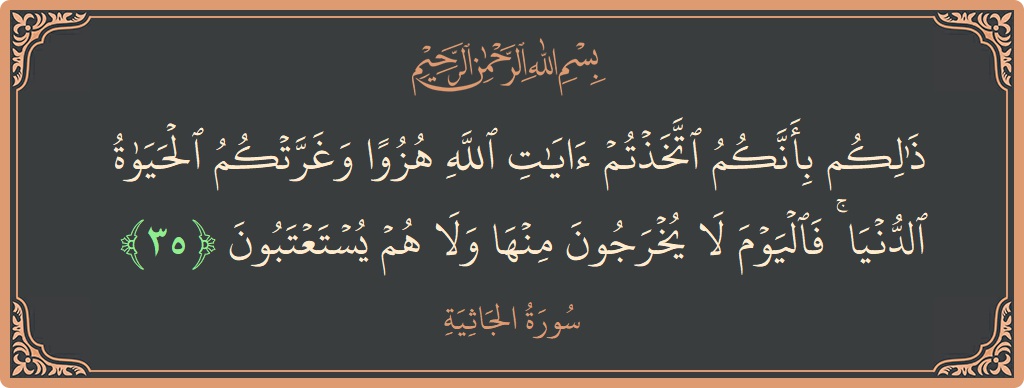 بِسْمِ اللَّهِ الرَّحْمَٰنِ الرَّحِيمِ
ذَٰلِكُم بِأَنَّكُمُ ٱتَّخَذْتُمْ ءَايَـٰتِ ٱللَّهِ هُزُوًا وَغَرَّتْكُمُ ٱلْحَيَوٰةُ
ٱلدُّنْيَا ۚ فَٱلْيَوْمَ لَا يُخْرَجُونَ مِنْهَا وَلَا هُمْ يُسْتَعْتَبُونَ ﴿٣٥﴾
سُورَةُ الجَاثِيَةِ